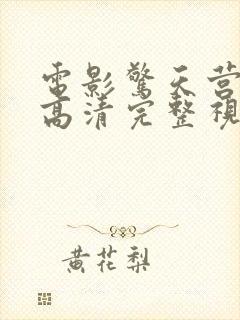 電影驚天营
高清完整視
黄花梨